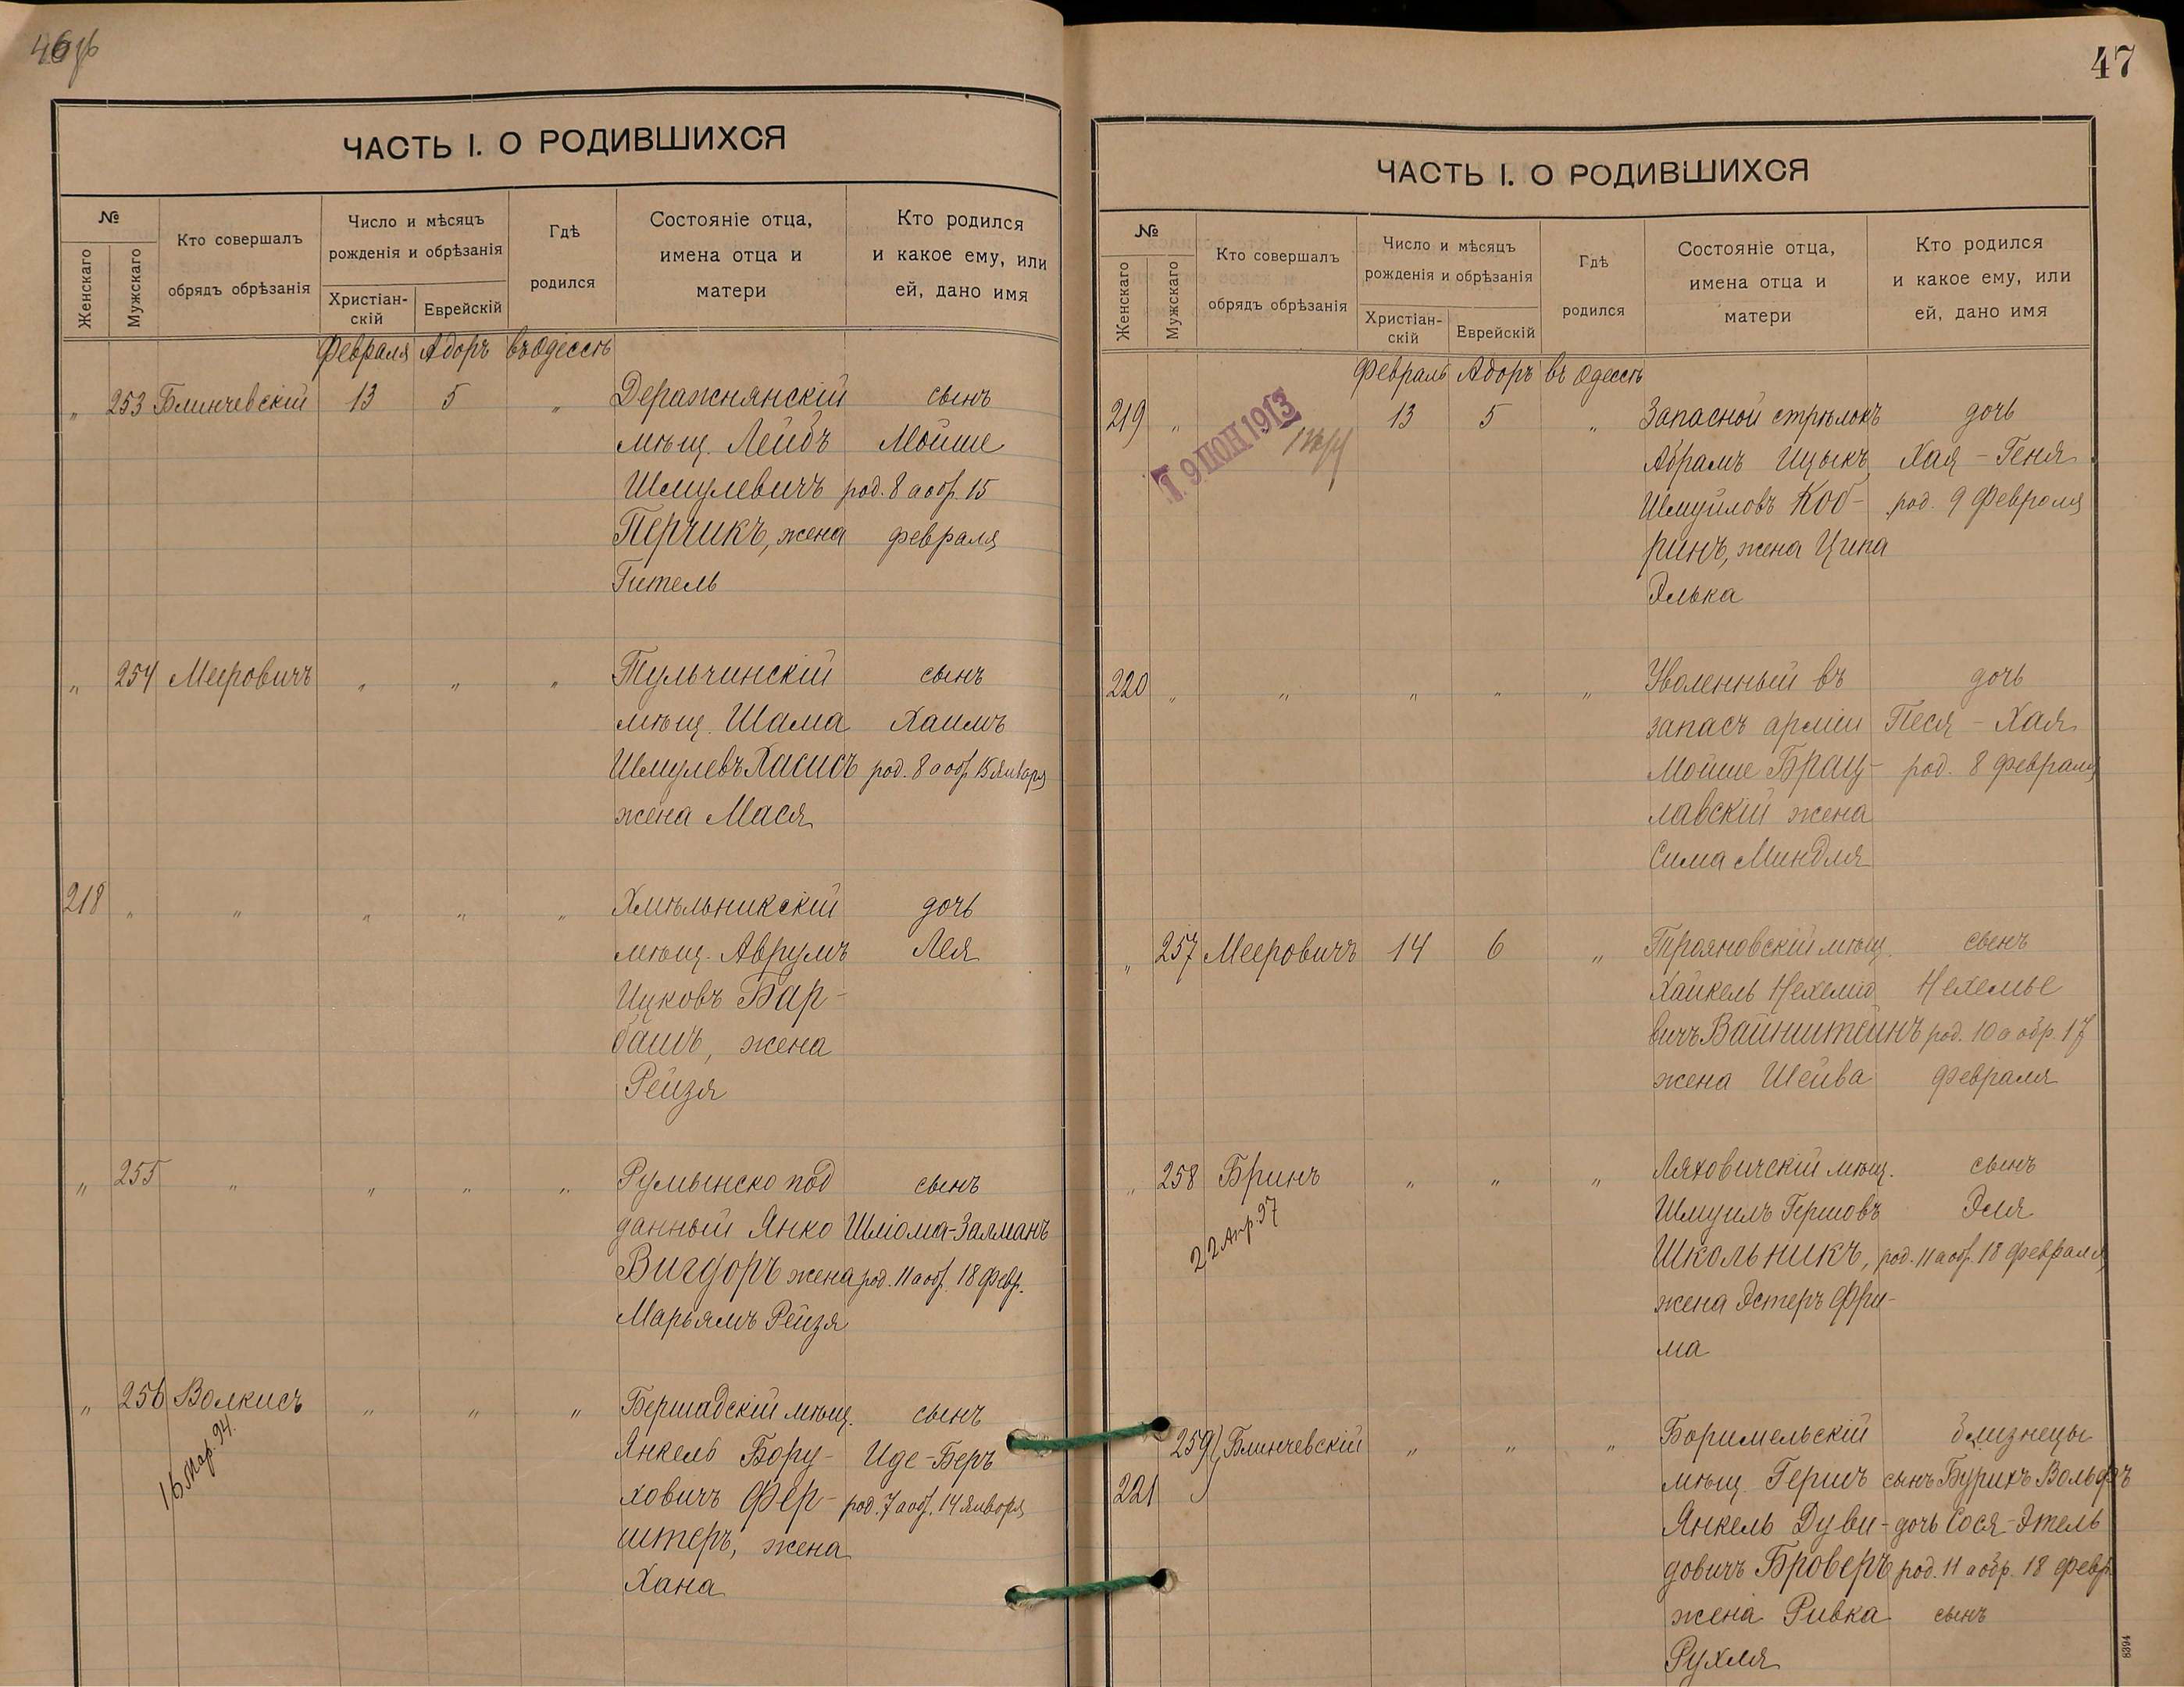 46 об
ЧАСТЬ I. О РОДИВШИХСЯ
№
Женскаго
Мужскаго
Кто совершалъ
обрядъ обрѣзанія
Число и мѣсяцъ
рожденія и обрѣзанія
Христіан-
скій
Еврейскій
Гдѣ
родился
Состояніе отца,
имена отца и
матери
Кто родился
и какое ему, или
ей, дано имя
Февраля Адоръ въ Одессѣ
„ 253 Блинчевскій 13 5 „ Деражнянскій сынъ
мѣщ. Лейбъ Мойше
Шмулевичъ род. 8 а обр. 15
Перчикъ, жена февраля
Гитель
„ 254 Мееровичъ „ „ „ Тульчинскій сынъ
мѣщ. Шама Хаимъ
Шмулевъ Хасисъ род. 8 а обр. 15 января
жена Мася
218 „ „ „ „ „ Хмѣльникскій дочь
мѣщ. Аврумъ Лея
Ицковъ Бар-
башъ, жена
Рейзя
„ 255 „ „ „ „ Румынско под сынъ
данный Янко Шліома-Залманъ
Вигдоръ жена род. 11 а обр. 18 февр.
Марьямъ Рейзя
„ 256 Волкисъ „ „ „ Бершадскій мѣщ. сынъ
16 Мар. 94.
Янкель Бору- Иде-Беръ
ховичъ Фер- род. 7 а обр. 14 января
штеръ, жена
Хана
47
ЧАСТЬ I. О РОДИВШИХСЯ
№
Женскаго
Мужскаго
Кто совершалъ
обрядъ обрѣзанія
Число и мѣсяцъ
рожденія и обрѣзанія
Христіан-
скій
Еврейскій
Гдѣ
родился
Состояніе отца,
имена отца и
матери
Кто родился
и какое ему, или
ей, дано имя
Февраль Адоръ въ Одессѣ
219 „ 13 5 „ Запасной стрѣлокъ дочь
9 ІЮН 1913
Абрамъ Ицыкъ Хая - Геня
Шмуйловъ Коб- род. 9 февраля
ринъ, жена Ципа
Элька
220 „ „ „ „ „ Уволенный въ дочь
запасъ арміи Песя - Хая
Мойше Брац- род. 8 февраля
лавскій жена
Сима Миндля
„ 257 Мееровичъ 14 6 „ Трояновскій мѣщ. сынъ
Хайкель Нехеміо Нехемье
вичъ Вайнштейнъ род. 10 а обр. 17
жена Шейва февраля
„ 258 Бринъ „ „ „ Ляховичскій мѣщ. сынъ
22 Апр. 97
Шмуилъ Гершовъ Эля
Школьникъ, род. 11 а обр. 18 февраля
жена Эстеръ Фри-
ма
259 Блинчевскій „ „ „ Боримельскій близнецы
221 мѣщ. Гершъ сынъ Бурихъ Вольфъ
Янкель Дуви- дочь Сося-Этель
довичъ Броверъ род. 11 а обр. 18 февр.
жена Ривка сынъ
Рухля
8394